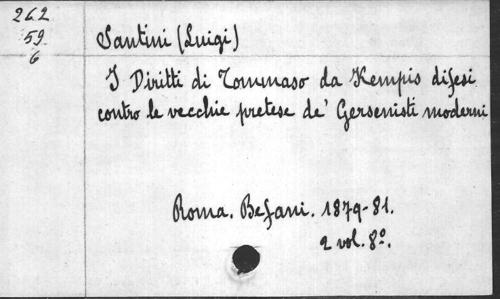 262
59
6
Santini (Luigi)
I Diritti di Tommaso da Kempis difesi
contro le vecchie pretese de' Gersenisti moderni
Roma. Befani. 1879-81.
2 vol. 8º.